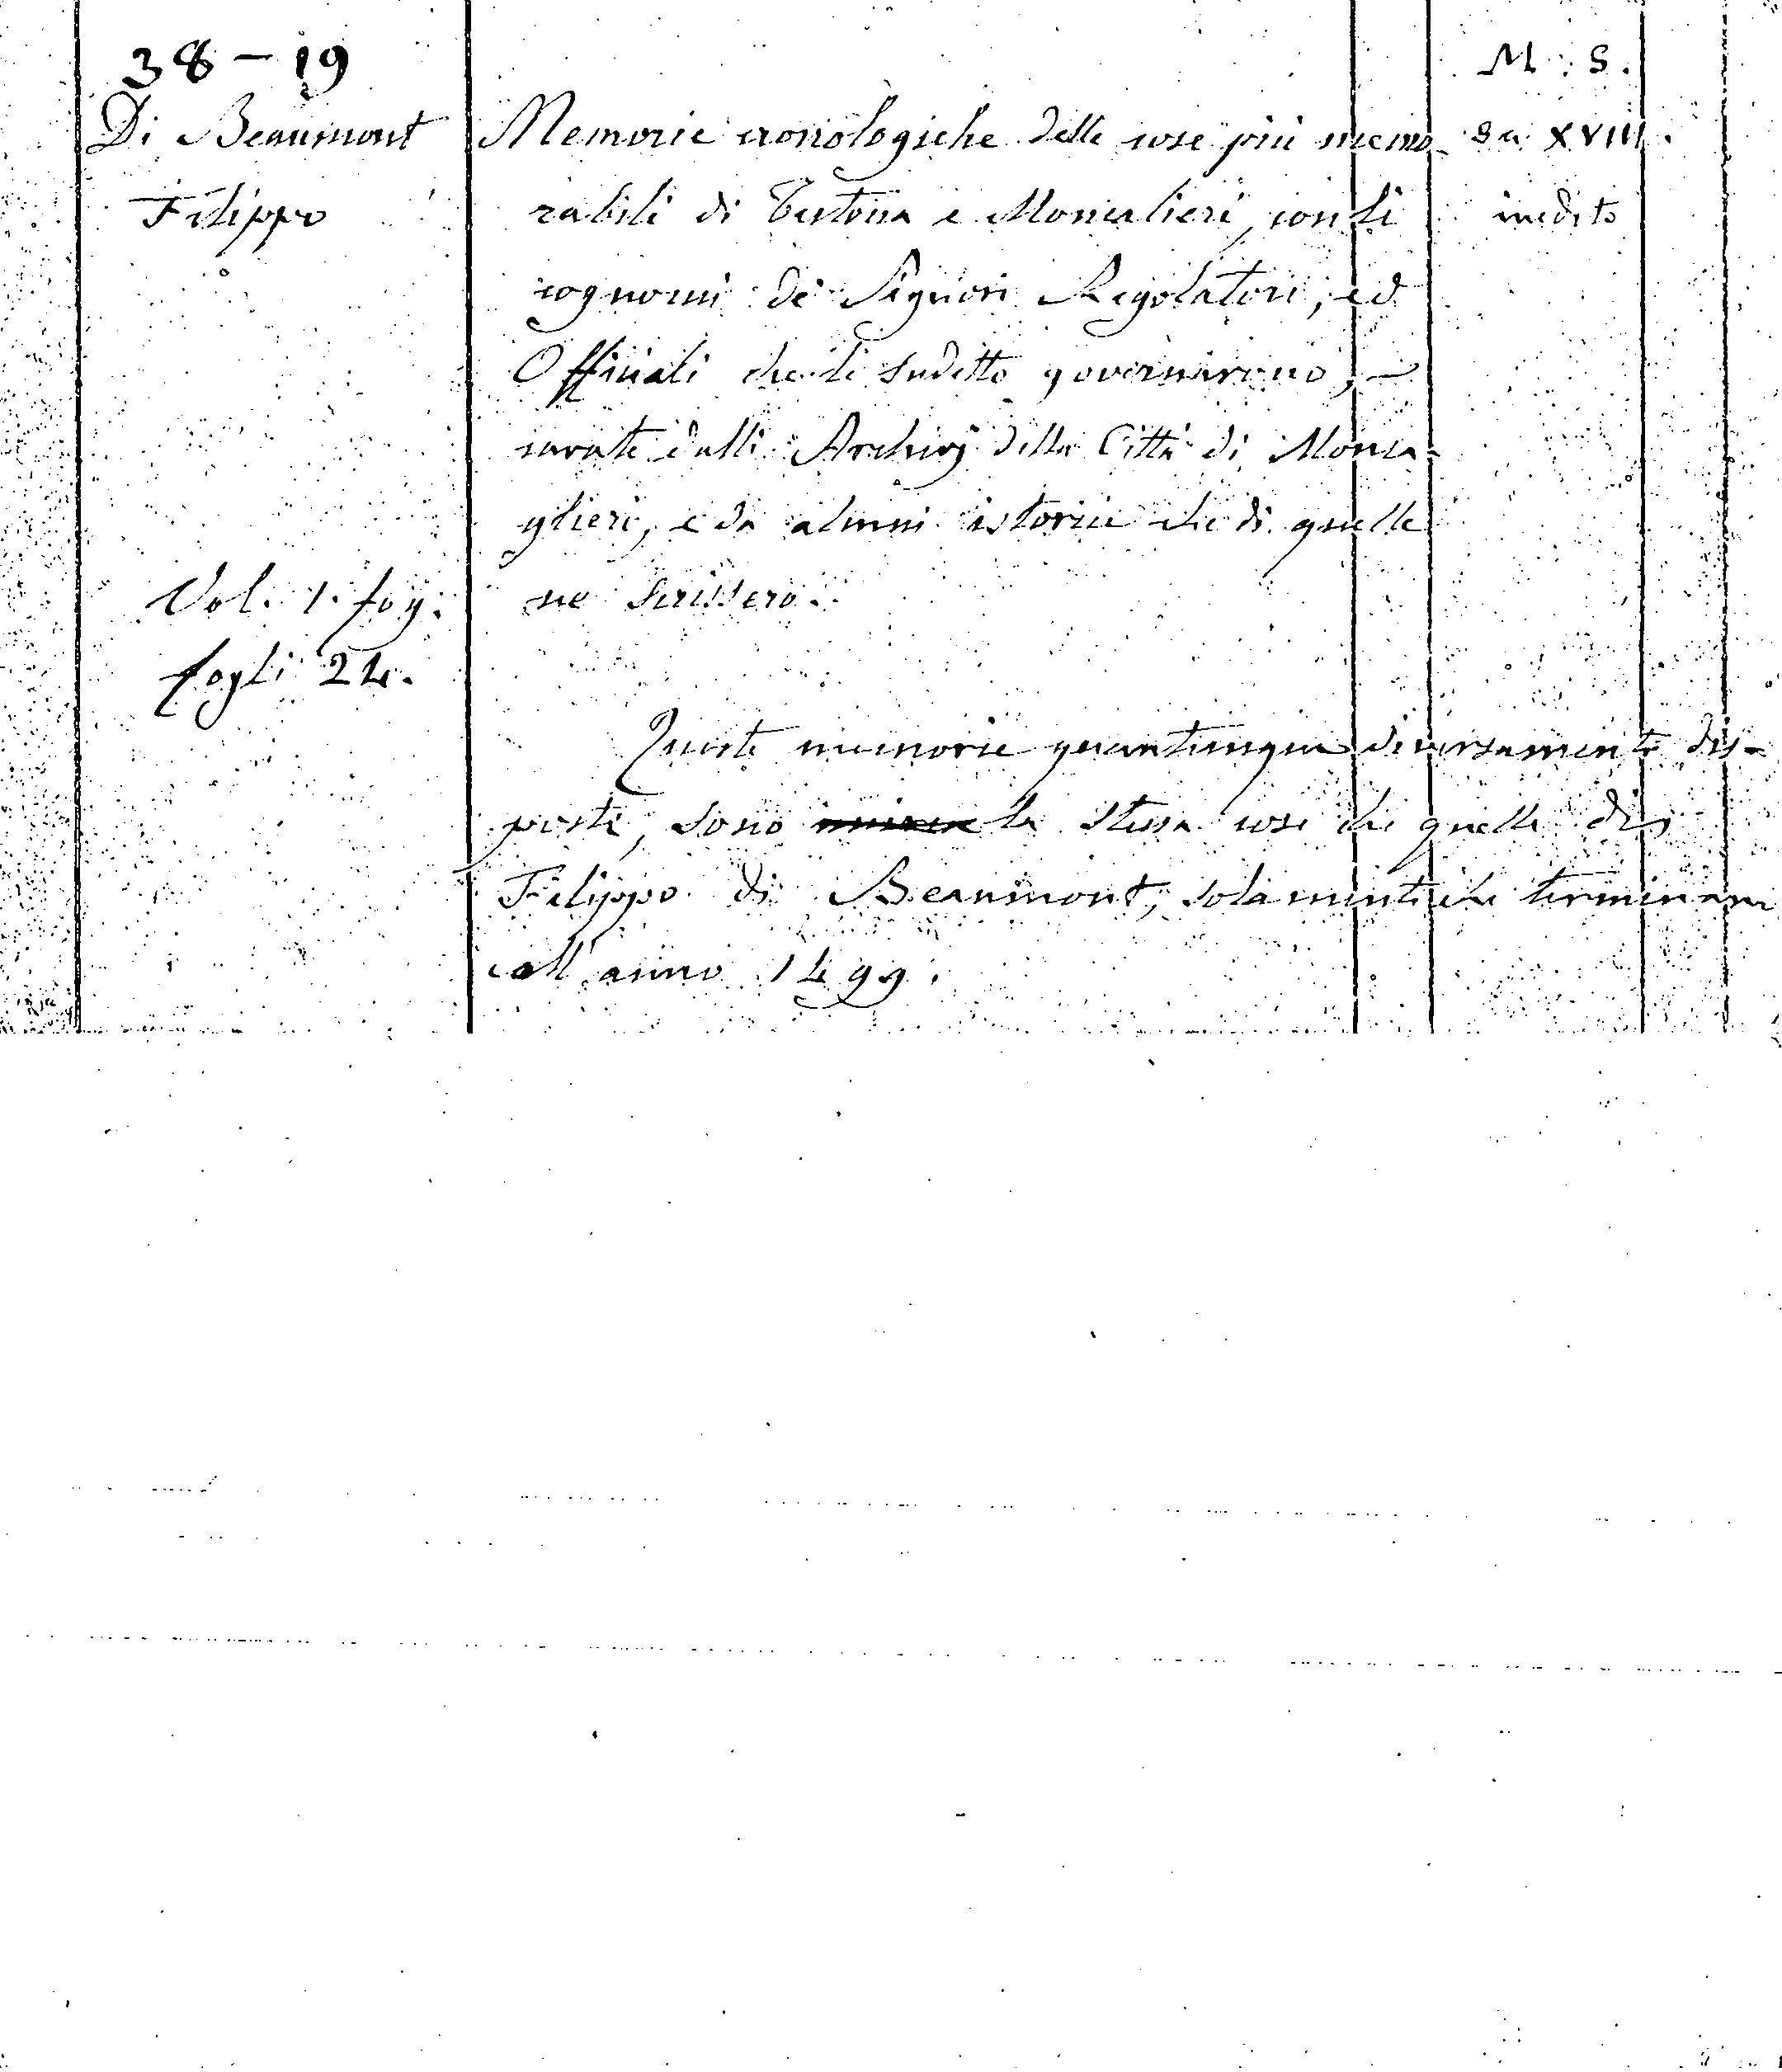 38 - 19
M. S.
Di Beaumont
Memorie cronologiche delle cose più memo-
sec. XVIII.
Filippo
rabili di Testona e Moncalieri, con li
inedito
cognomi de' Signori Regolatori, ed
Officiali che li suditte governarono, -
cavate dalli Archivj della Città di Monca-
glieri, e da alcuni istorici che di quelle
Vol. 1. fog.
ne scrissero.
fogli 24.
Queste memorie quantunque diversamente dis-
poste, sono le stesse cose che quelle di
Filippo di Beaumont, solamente che terminano
coll'anno 1499.